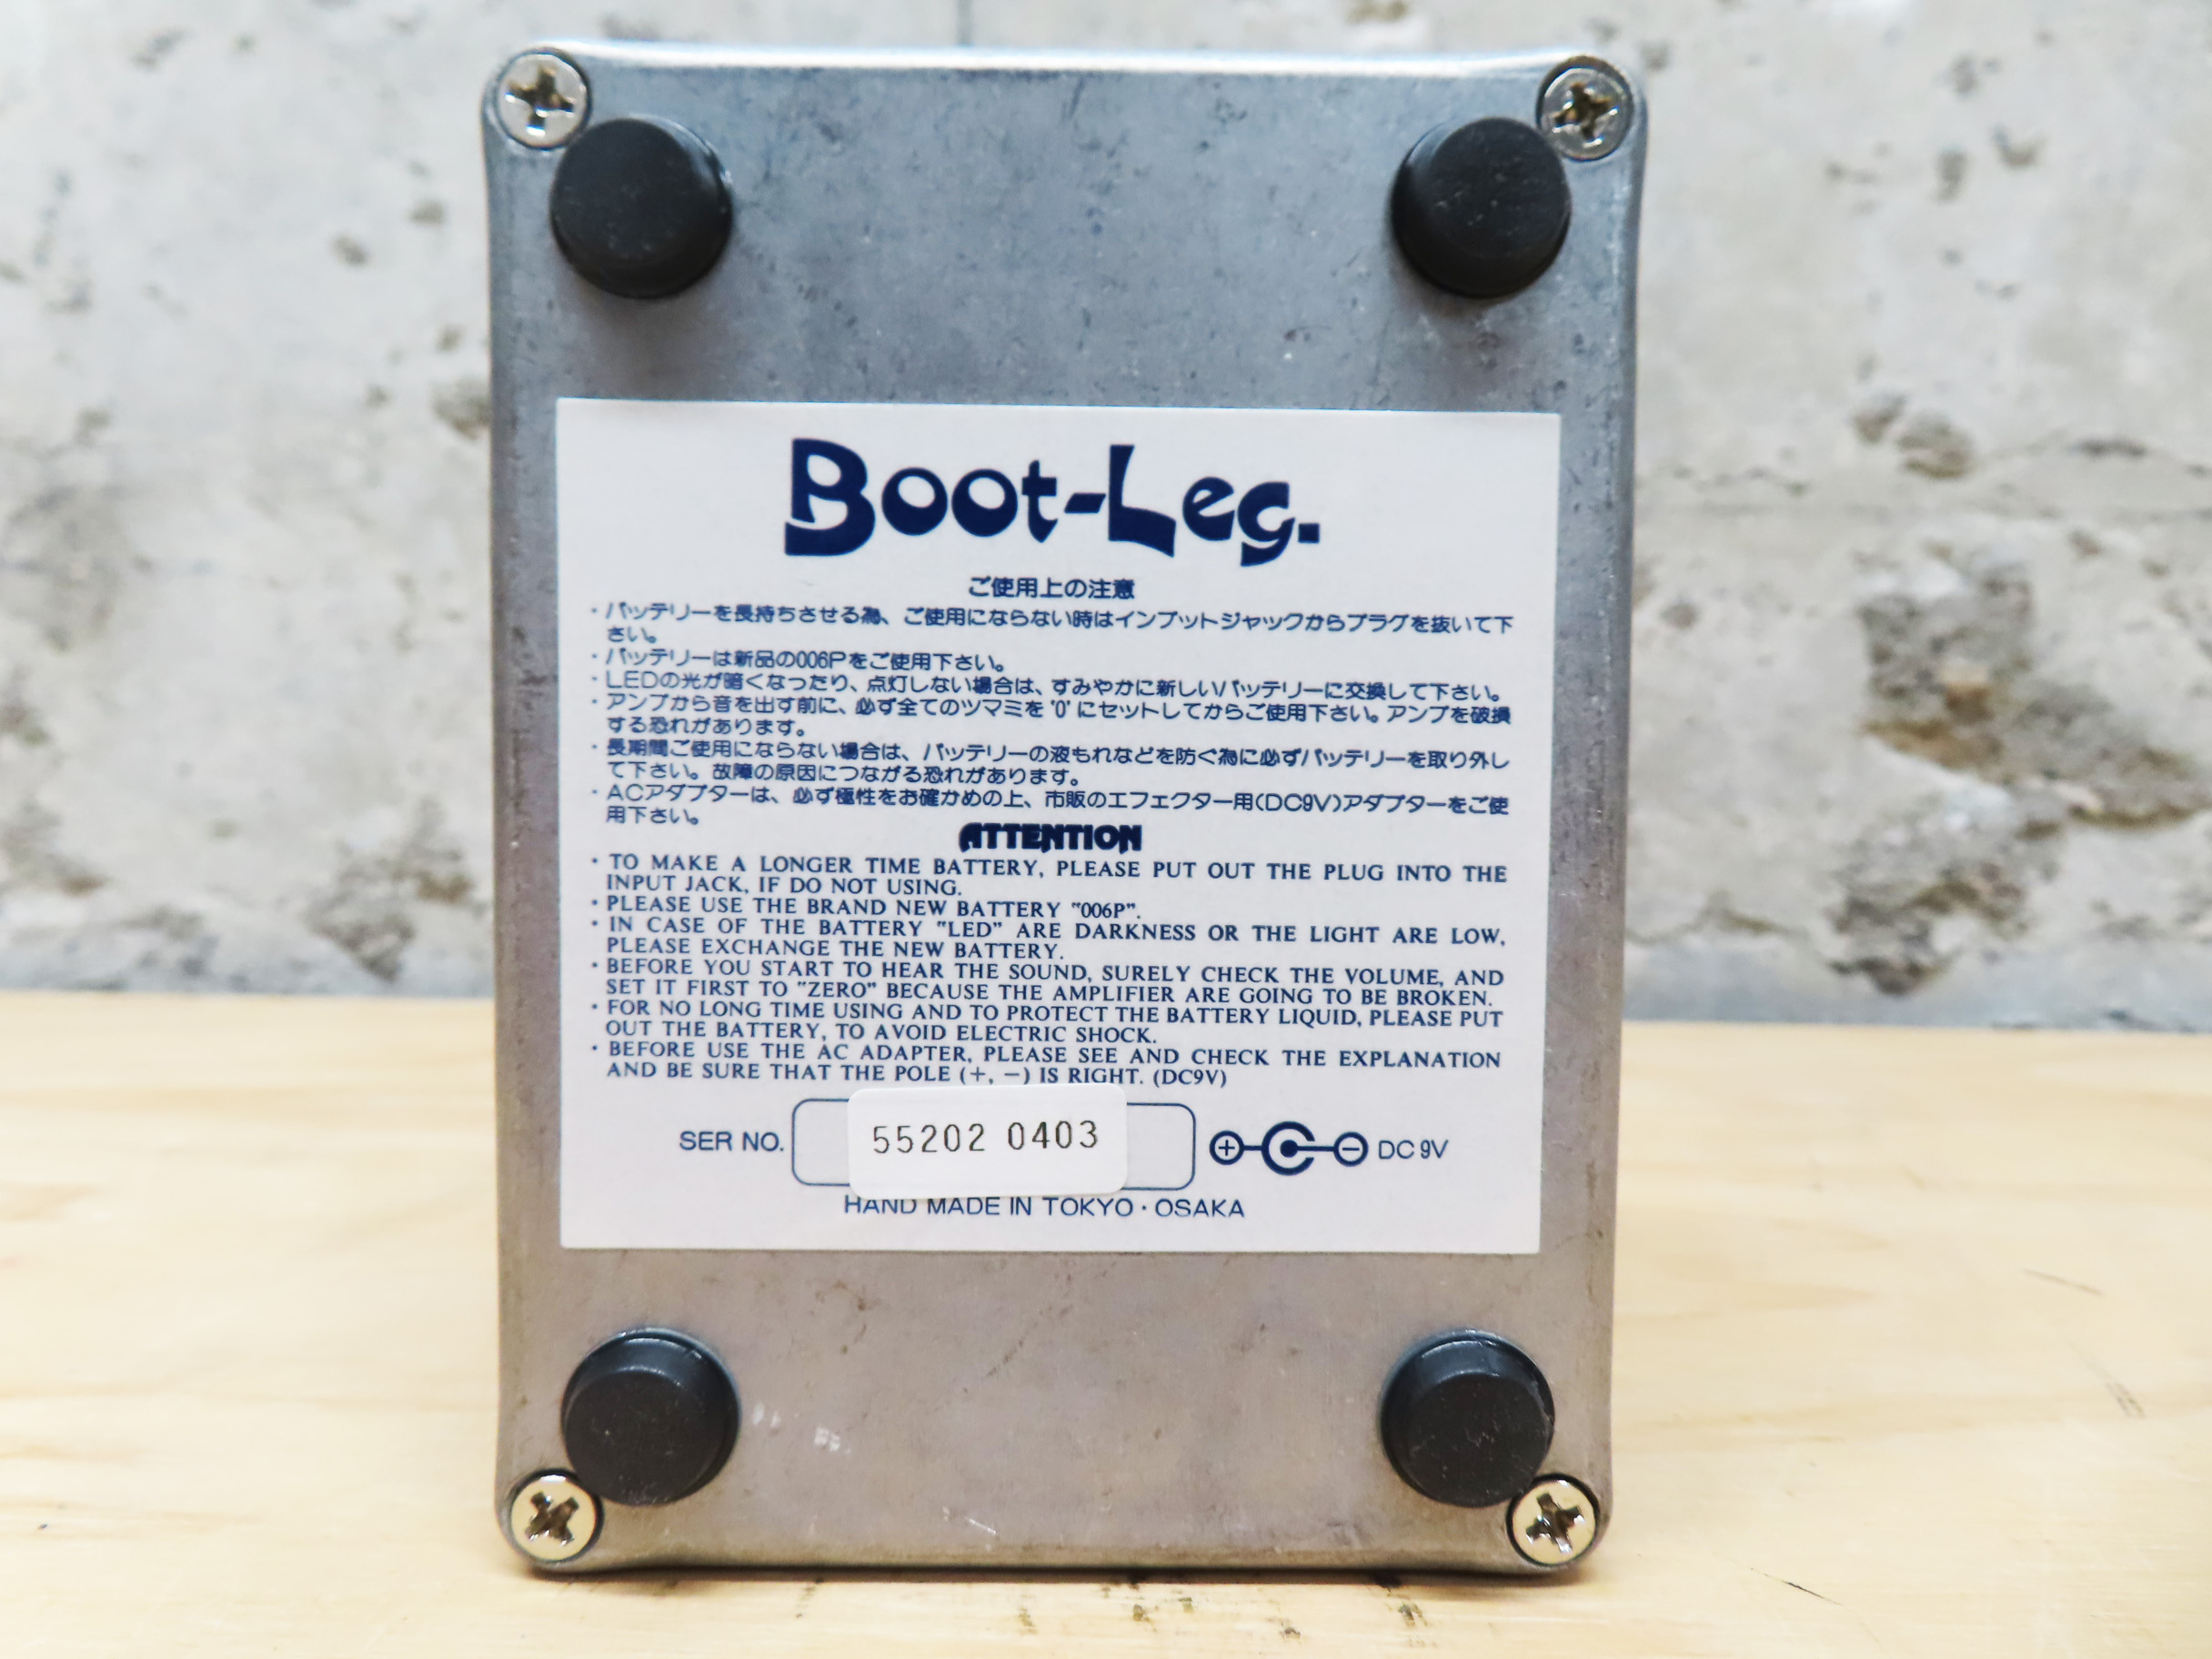 Boot-Leg.
ご使用上の注意
・バッテリーを長持ちさせる為、ご使用にならない時はインプットジャックからプラグを抜いて下
さい。
・バッテリーは新品の006Pをご使用下さい。
・LEDの光が暗くなったり、点灯しない場合は、すみやかに新しいバッテリーに交換して下さい。
・アンプから音を出す前に、必ず全てのツマミを"0"にセットしてからご使用下さい。アンプを破損
する恐れがあります。
・長期間ご使用にならない場合は、バッテリーの液もれなどを防ぐ為に必ずバッテリーを取り外し
て下さい。故障の原因につながる恐れがあります。
・ACアダプターは、必ず極性をお確かめの上、市販のエフェクター用(DC9V)アダプターをご使
用下さい。
ATTENTION
・TO MAKE A LONGER TIME BATTERY, PLEASE PUT OUT THE PLUG INTO THE
INPUT JACK, IF DO NOT USING.
・PLEASE USE THE BRAND NEW BATTERY "006P".
・IN CASE OF THE BATTERY "LED" ARE DARKNESS OR THE LIGHT ARE LOW,
PLEASE EXCHANGE THE NEW BATTERY.
・BEFORE YOU START TO HEAR THE SOUND, SURELY CHECK THE VOLUME, AND
SET IT FIRST TO "ZERO" BECAUSE THE AMPLIFIER ARE GOING TO BE BROKEN.
・FOR NO LONG TIME USING AND TO PROTECT THE BATTERY LIQUID, PLEASE PUT
OUT THE BATTERY, TO AVOID ELECTRIC SHOCK.
・BEFORE USE THE AC ADAPTER, PLEASE SEE AND CHECK THE EXPLANATION
AND BE SURE THAT THE POLE (+, −) IS RIGHT. (DC9V)
SER NO. 55202 0403 + − DC 9V
HAND MADE IN TOKYO・OSAKA